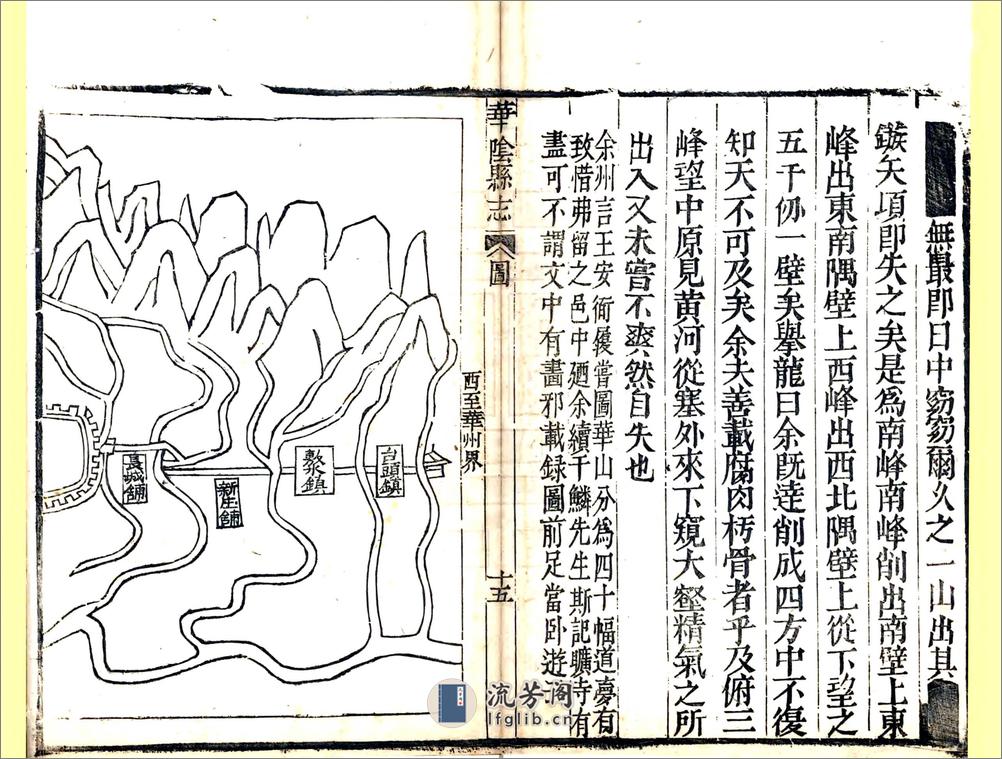 無最即日中窈窈爾久之一山出其
鏃矢項即失之矣是為南峰南峰削出南壁上東
峰出東南隅壁上西峰出西北隅壁上從下望之
五千仞一壁矣攀龍曰余既達削成四方中不復
知天不可及矣余夫善載腐肉朽骨者乎及俯三
峰望中原見黄河從塞外來下窺大壑精氣之所
出入又未嘗不爽然自失也
余州言王安衜履嘗圖華山分為四十幅道夢有
致惜弗留之邑中廼余續千鱗先生斯記曠寺有
盡可不謂文中有畵邪載録圖前足當卧遊
華陰縣志
圖
十五
西至華州界
台頭鎮
敷水鎮
新生舖
長城舖
流芳阁
lfglib.cn